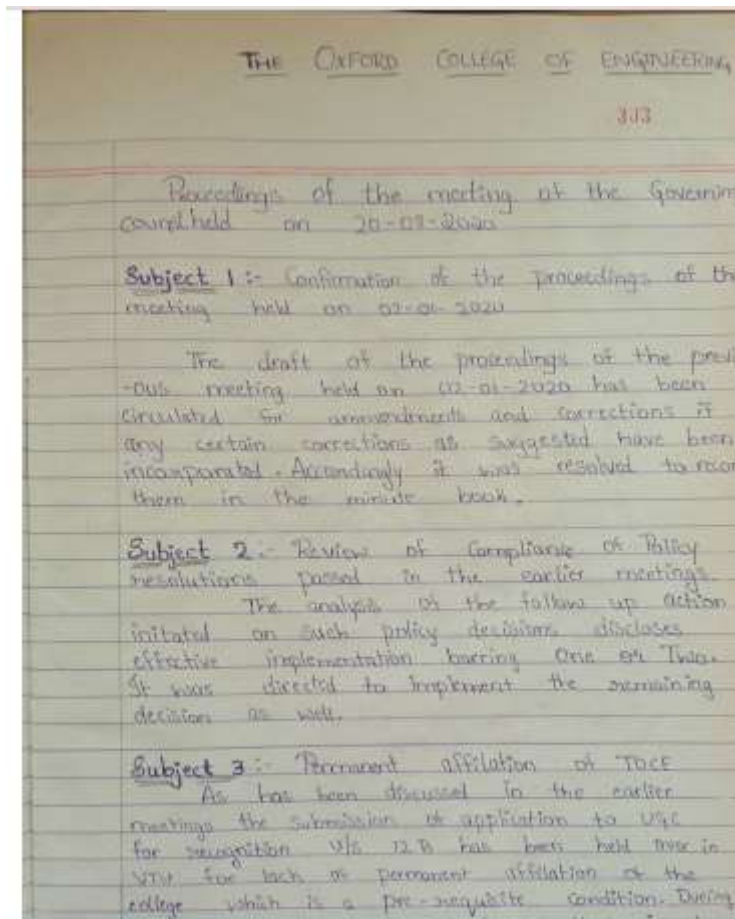 THE OXFORD COLLEGE OF ENGINEERING
Proceedings of the meeting of the Governin
held on
Subject 1 :- Confirmation of the proceedings of the
meeting held on
The draft of the proceedings of the previ
-ous meeting held on 02-01-2020 has been
circulated for ammendments and corrections if
any certain corrections as suggested have been
incorporated. Accordingly it was resolved to recor
them in the minute book.
Subject 2 :- Review of Compliance of Policy
resolutions passed in the earlier meetings.
The analysis of the follow up action
initated on such policy decisions discloses
effective implementation barring One or Two.
It was directed to implement the remaining
decision as well.
Subject 3 :- Permanent affilation of TOCE
As has been discussed in the earlier
meetings the submission of application to UGC
for recognition U/S 12 B has been held over in
VTU for lack of permanent affilation of the
college which is a pre-requisite condition. During